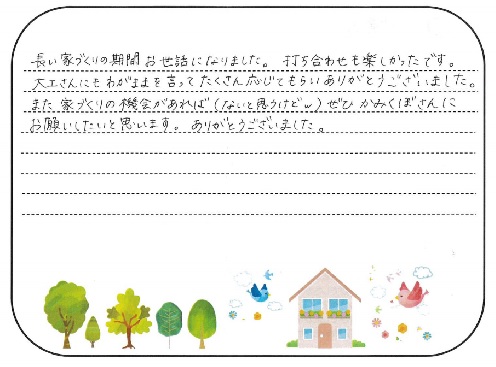 長い家づくりの期間お世話になりました。 打ち合わせも楽しかったです。
大工さんにもわがままを言ってたくさん応じてもらいありがとうございました。
また家づくりの機会があれば（ないと思うけどw）ぜひかみくぼさんに
お願いしたいと思います。ありがとうございました。